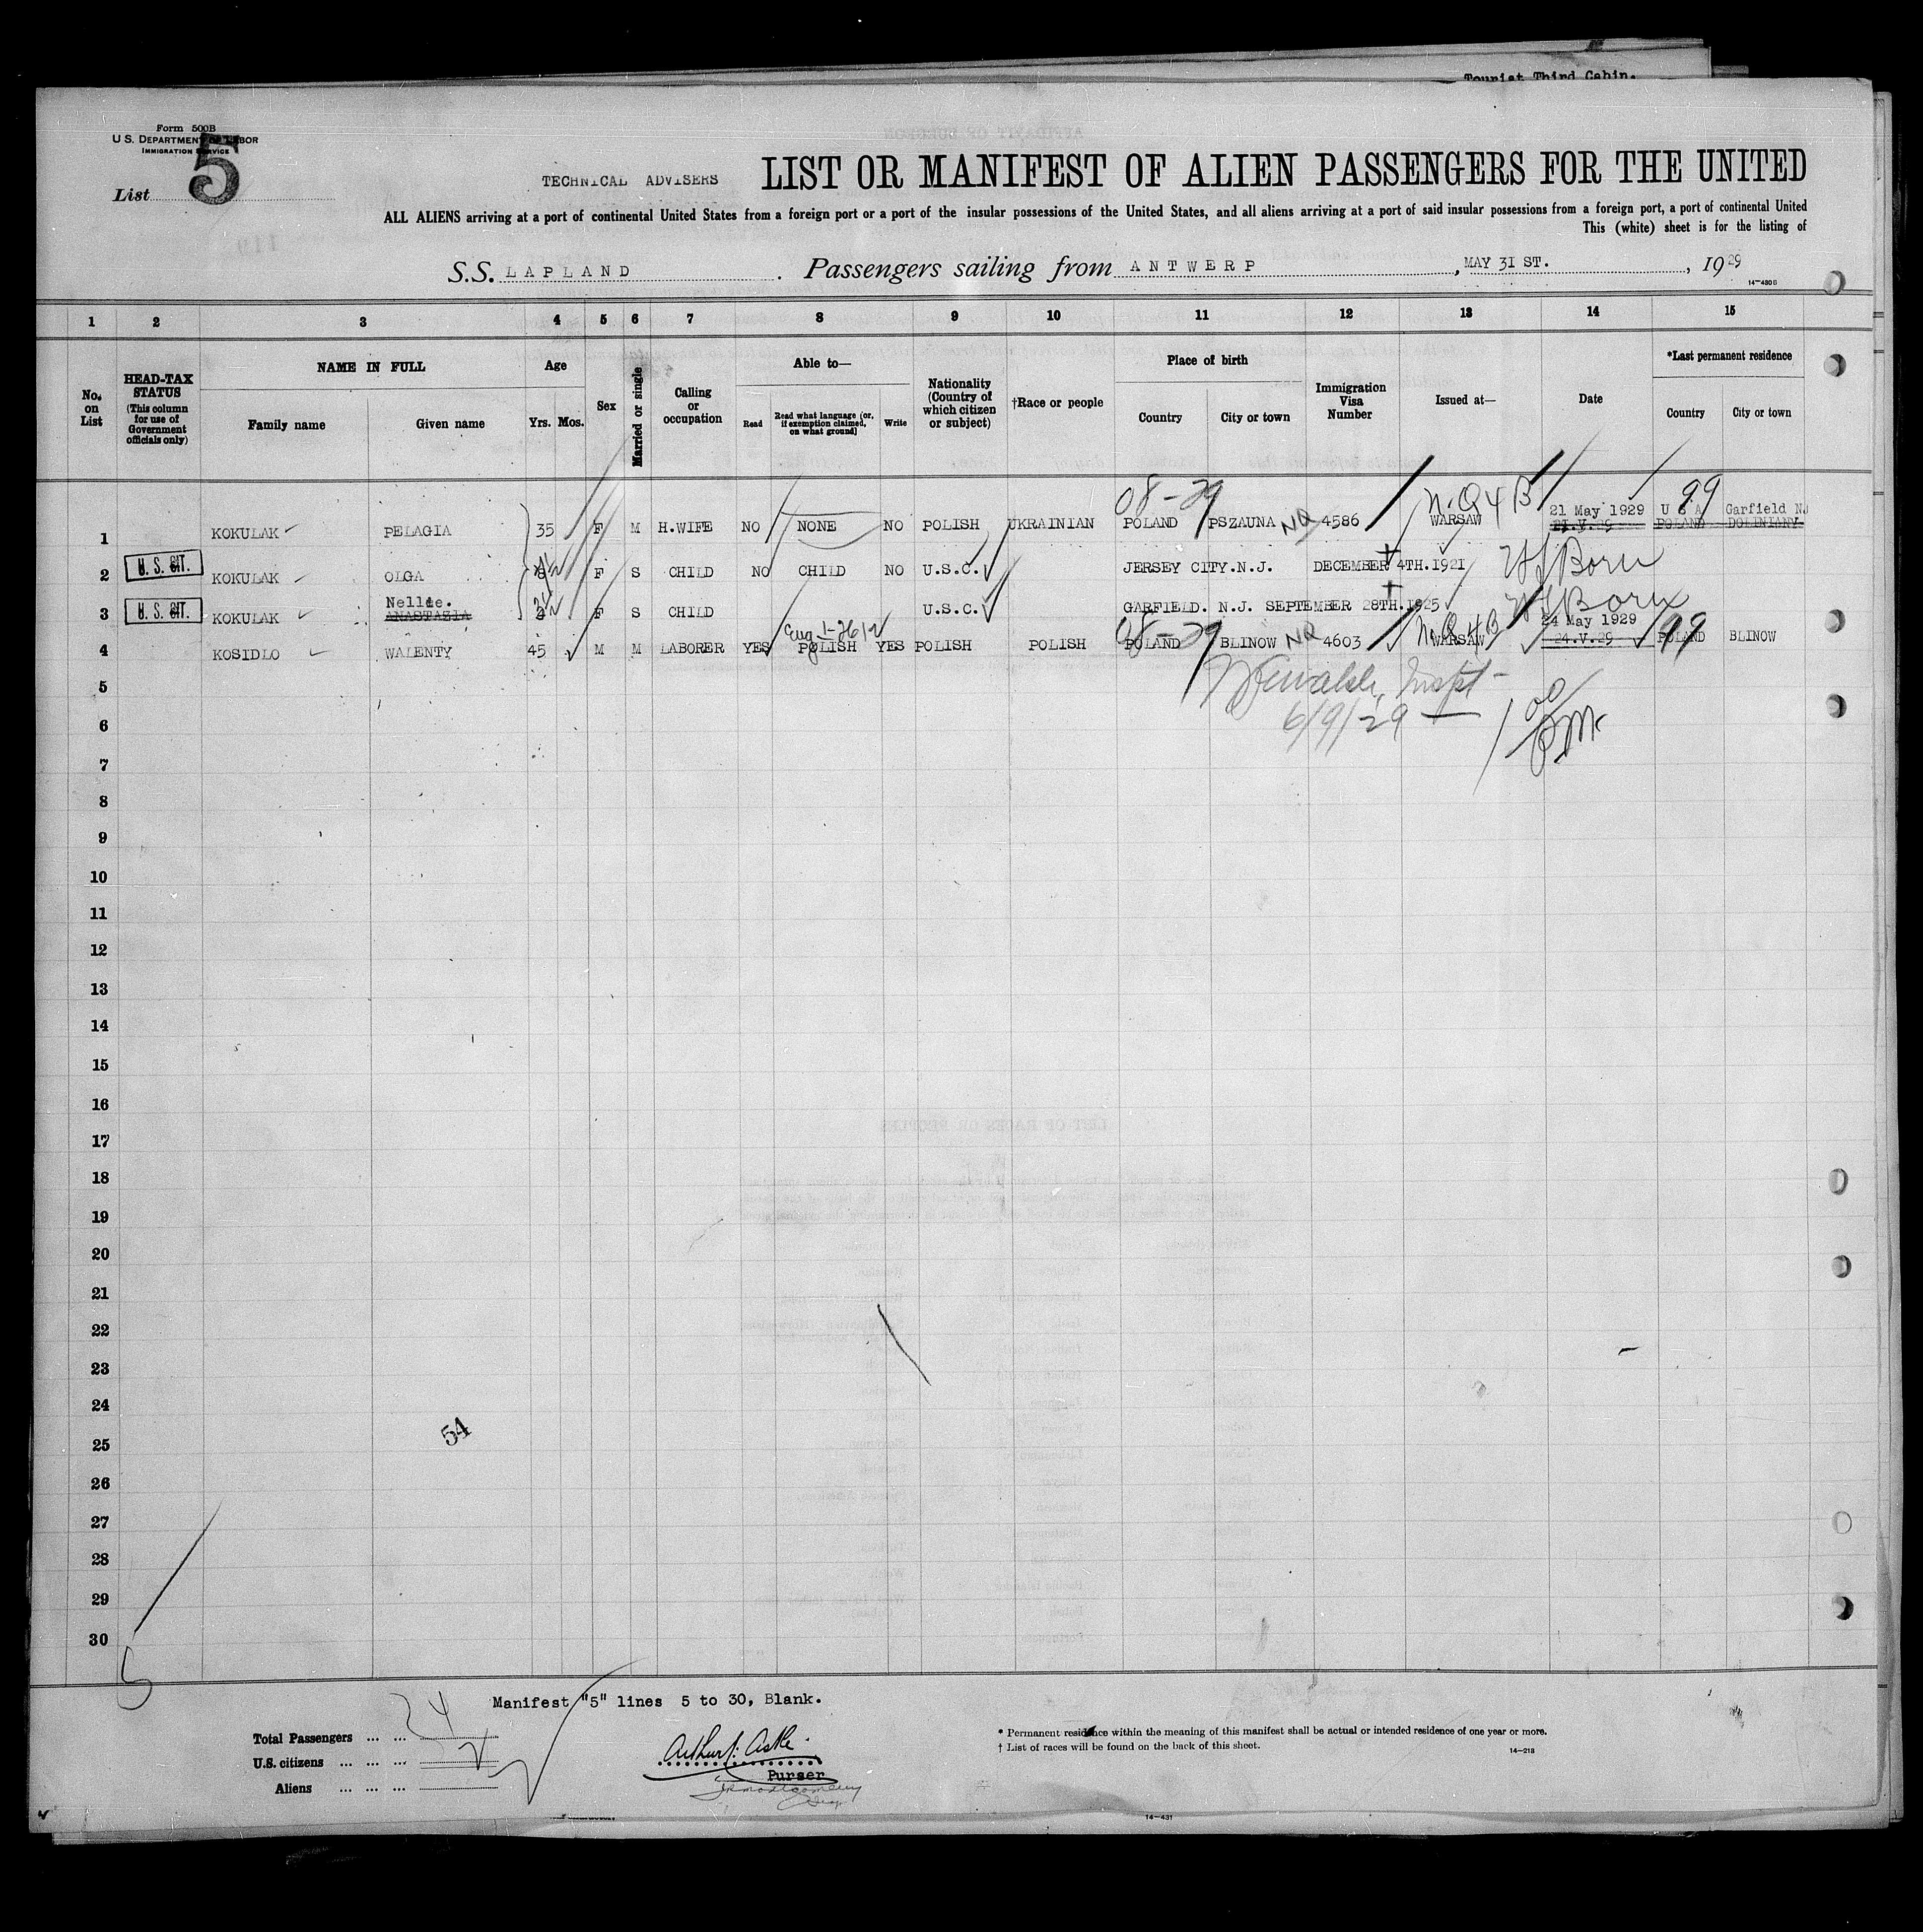 Tourist Third Cabin.
Form 500B
U. S. DEPARTMENT OF LABOR
IMMIGRATION SERVICE
List 5
TECHNICAL ADVISERS LIST OR MANIFEST OF ALIEN PASSENGERS FOR THE UNITED
ALL ALIENS arriving at a port of continental United States from a foreign port or a port of the insular possessions of the United States, and all aliens arriving at a port of said insular possessions from a foreign port, a port of continental United
This (white) sheet is for the listing of
S.S. LAPLAND . Passengers sailing from ANTWERP , MAY 31 ST. , 19 29
14-430B
1 2 3 4 5 6 7 8 9 10 11 12 13 14 15
No. on List
HEAD-TAX STATUS (This column for use of Government officials only)
NAME IN FULL
Family name Given name
Age
Yrs. Mos.
Sex
Married or single
Calling or occupation
Able to—
Read Read what language (or, if exemption claimed, on what ground) Write
Nationality (Country of which citizen or subject)
†Race or people
Place of birth
Country City or town
Immigration Visa Number
Issued at—
Date
*Last permanent residence
Country City or town
08-29 N.Q 4 B 99
21 May 1929 U S A Garfield NJ
1 KOKULAK PELAGIA 35 F M H.WIFE NO NONE NO POLISH UKRAINIAN POLAND PSZAUNA NQ 4586 WARSAW 21.V.29 POLAND DOLINIANY
2 U. S. CIT. KOKULAK OLGA F S CHILD NO CHILD NO U.S.C. JERSEY CITY.N.J. DECEMBER 4TH.1921 Born
Nellie.
3 U. S. CIT. KOKULAK ANASTAZIA F S CHILD U.S.C. GARFIELD. N.J. SEPTEMBER 28TH.1925 Born
08-29 24 May 1929 99
4 KOSIDLO WALENTY 45 M M LABORER YES POLISH YES POLISH POLISH POLAND BLINOW NQ 4603 WARSAW 24.V.29 POLAND BLINOW
5
6/9/29
6
7
8
9
10
11
12
13
14
15
16
17
18
19
20
21
22
23
24
54
25
26
27
28
29
30
5
Manifest "5" lines 5 to 30, Blank.
Total Passengers ... ... 4
U.S. citizens ... ... ... 2
Aliens ... ... ...
Purser
* Permanent residence within the meaning of this manifest shall be actual or intended residence of one year or more.
† List of races will be found on the back of this sheet.
14-218
14-431